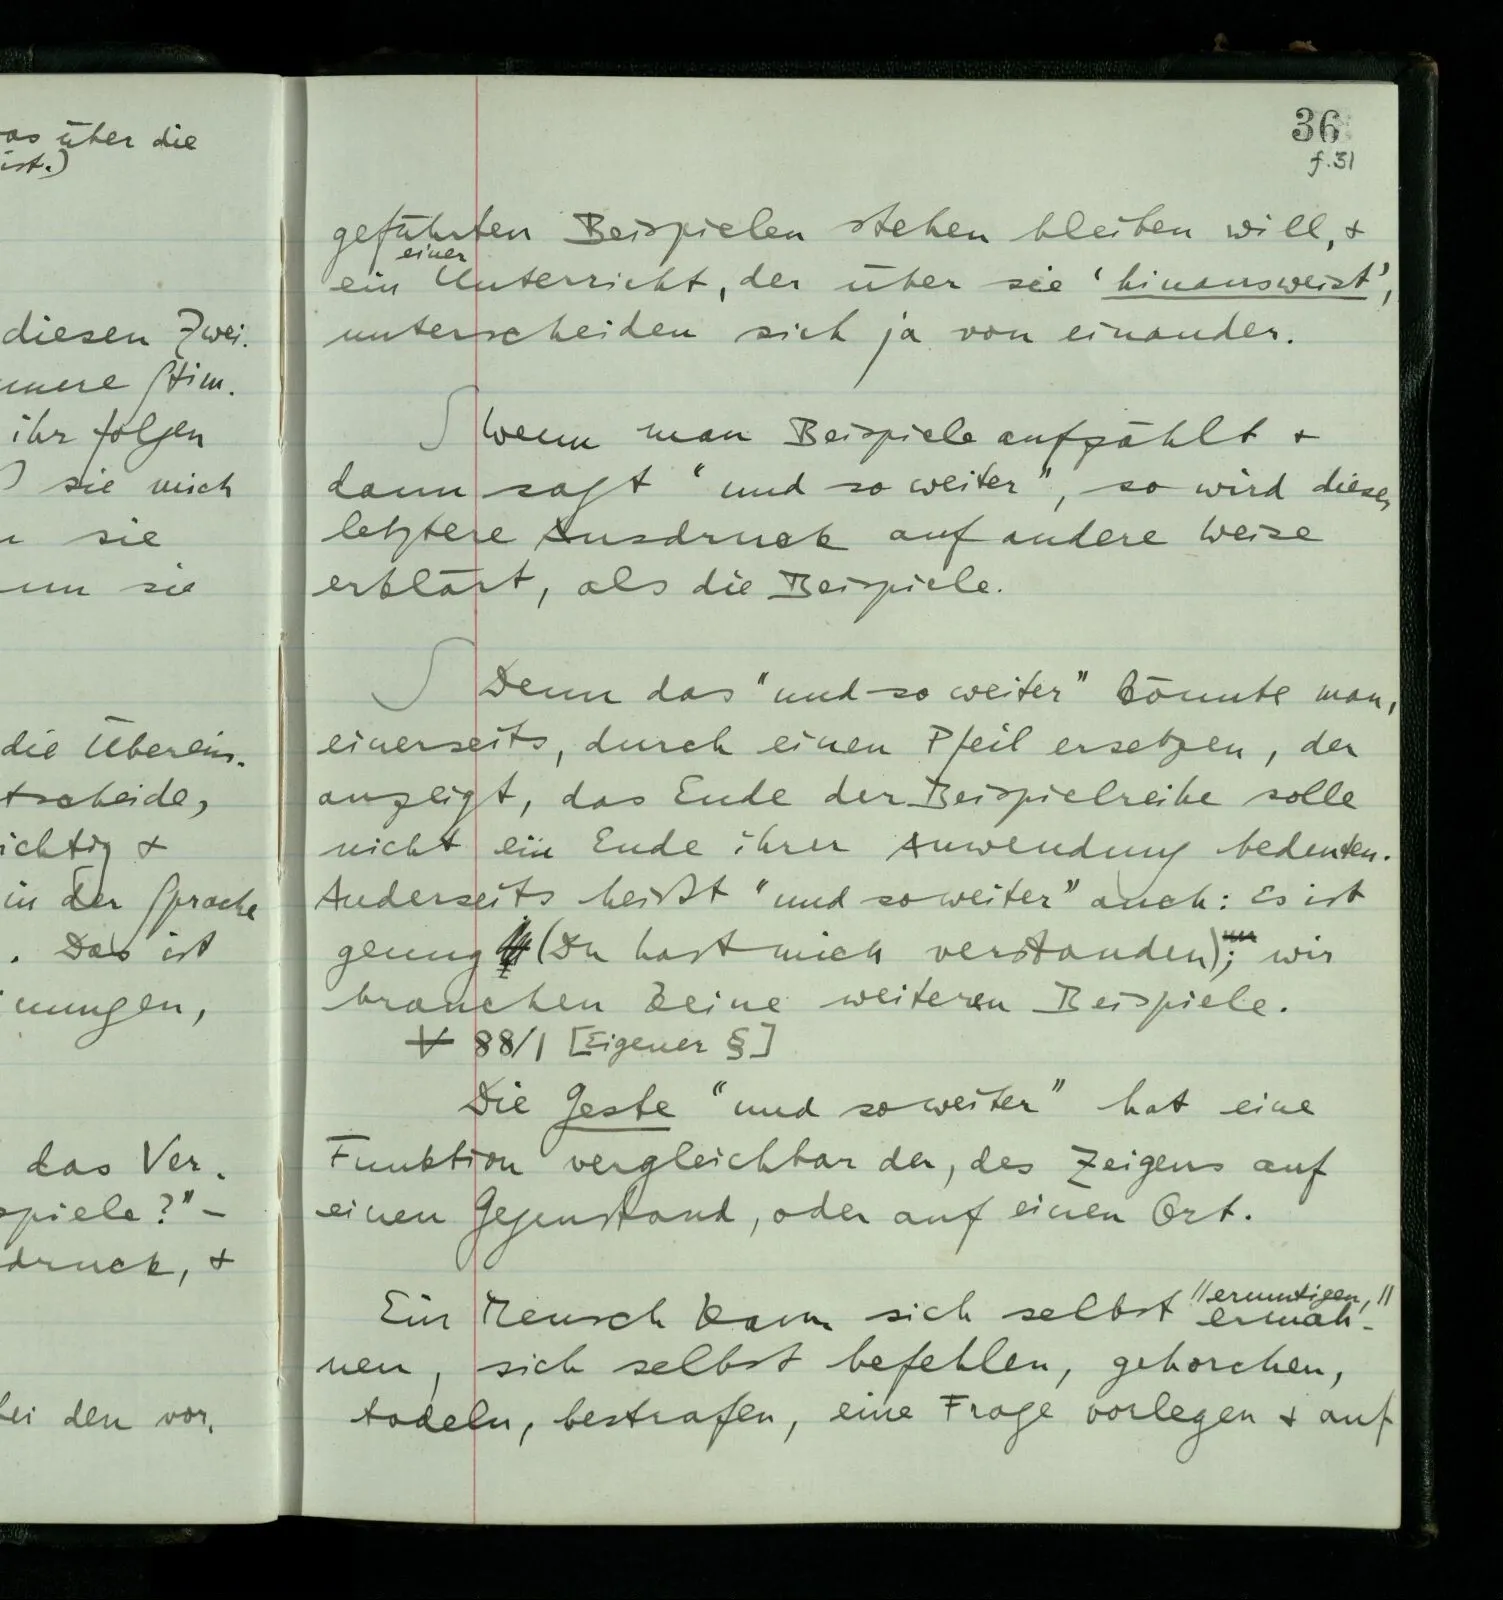 as über die
ist.)
diesen Zwei-
nnere Stim-
ihr folgen
sie mich
sie
nn sie
die Überein-
tscheide,
ichtig &
in der Sprache
. Das ist
nungen,
das Ver-
spiele?" –
druck, &
bei den vor-
36
f.31
geführten Beispielen stehen bleiben will, &
einer
ein Unterricht, der über sie 'hinausweist',
unterscheiden sich ja von einander.
∫ Wenn man Beispiele aufzählt &
dann sagt "und so weiter", so wird dieser
letztere Ausdruck auf andere Weise
erklärt, als die Beispiele.
∫ Denn das "und so weiter" könnte man,
einerseits, durch einen Pfeil ersetzen, der
anzeigt, das Ende der Beispielreihe solle
nicht ein Ende ihrer Anwendung bedeuten.
Anderseits heißt "und so weiter" auch: Es ist
genug (Du hast mich verstanden); wir
brauchen keine weiteren Beispiele.
V 88/1 [Eigener §]
Die Geste "und so weiter" hat eine
Funktion vergleichbar der, des Zeigens auf
einen Gegenstand, oder auf einen Ort.
"ermutigen,"
Ein Mensch kann sich selbst ermah-
nen, sich selbst befehlen, gehorchen,
tadeln, bestrafen, eine Frage vorlegen & auf